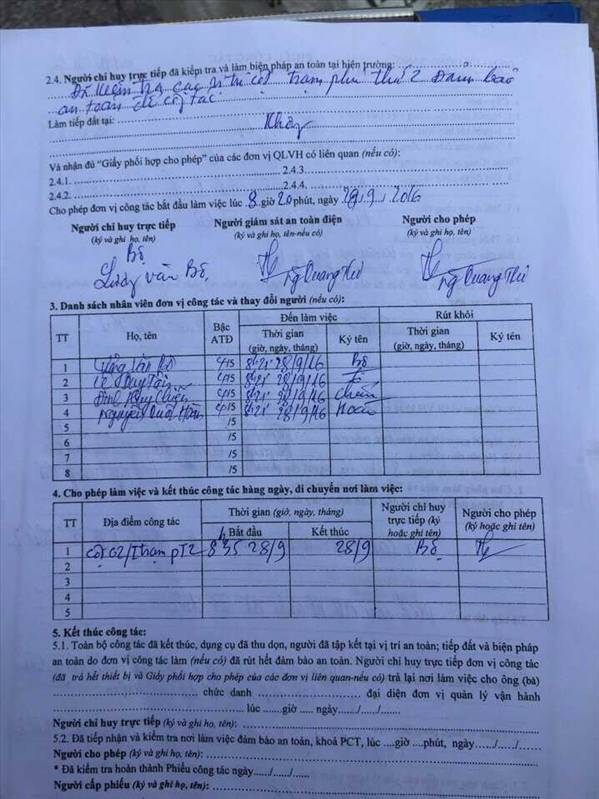 2.4. Người chỉ huy trực tiếp đã kiểm tra và làm biện pháp an toàn tại hiện trường:
an toàn để công tác
Làm tiếp đất tại: Không
Và nhận đủ “Giấy phối hợp cho phép” của các đơn vị QLVH có liên quan (nếu có):
2.4.1. 2.4.3.
2.4.2. 2.4.4.
Cho phép đơn vị công tác bắt đầu làm việc lúc 8 giờ 20 phút, ngày 28/9/2016
Người chỉ huy trực tiếp Người giám sát an toàn điện Người cho phép
(ký và ghi họ, tên) (ký và ghi họ, tên-nếu có) (ký và ghi họ, tên)
Bộ
văn Bộ Ng Quang Ng Quang
3. Danh sách nhân viên đơn vị công tác và thay đổi người (nếu có):
TT Họ, tên Bậc ATĐ Đến làm việc Rút khỏi
Thời gian (giờ, ngày, tháng) Ký tên Thời gian (giờ, ngày, tháng) Ký tên
1 Văn Bộ 4/5 28/9/16 Bộ
2 4/5 28/9/16
3 4/5 28/9/16
4 Nguyễn 4/5 28/9/16
5 /5
6 /5
7 /5
8 /5
4. Cho phép làm việc và kết thúc công tác hàng ngày, di chuyển nơi làm việc:
TT Địa điểm công tác Thời gian (giờ, ngày, tháng) Người chỉ huy trực tiếp (ký hoặc ghi tên) Người cho phép (ký hoặc ghi tên)
Bắt đầu Kết thúc
1 28/9 28/9 Bộ
2
3
4
5
5. Kết thúc công tác:
5.1. Toàn bộ công tác đã kết thúc, dụng cụ đã thu dọn, người đã tập kết tại vị trí an toàn; tiếp đất và biện pháp
an toàn do đơn vị công tác làm (nếu có) đã rút hết đảm bảo an toàn. Người chỉ huy trực tiếp đơn vị công tác
(đã trả hết thiết bị và Giấy phối hợp cho phép của các đơn vị liên quan-nếu có) trả lại nơi làm việc cho ông (bà)
chức danh đại diện đơn vị quản lý vận hành
lúc giờ ngày / /
Người chỉ huy trực tiếp (ký và ghi họ, tên):
5.2. Đã tiếp nhận và kiểm tra nơi làm việc đảm bảo an toàn, khoá PCT, lúc giờ phút, ngày / /
Người cho phép (ký và ghi họ, tên):
* Đã kiểm tra hoàn thành Phiếu công tác ngày / /
Người cấp phiếu (ký và ghi họ, tên):